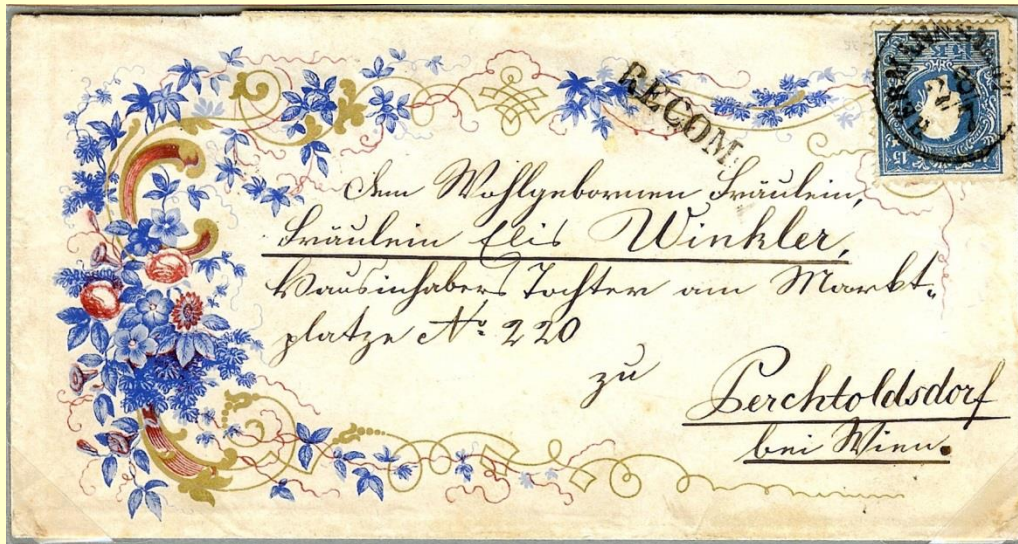 RECOM:
15
Dem Wohlgebornen Fräulein,
Fräulein Elis Winkler,
Hausinhabers Tochter am Markt-
platze No. 220
zu
Perchtoldsdorf
bei Wien.